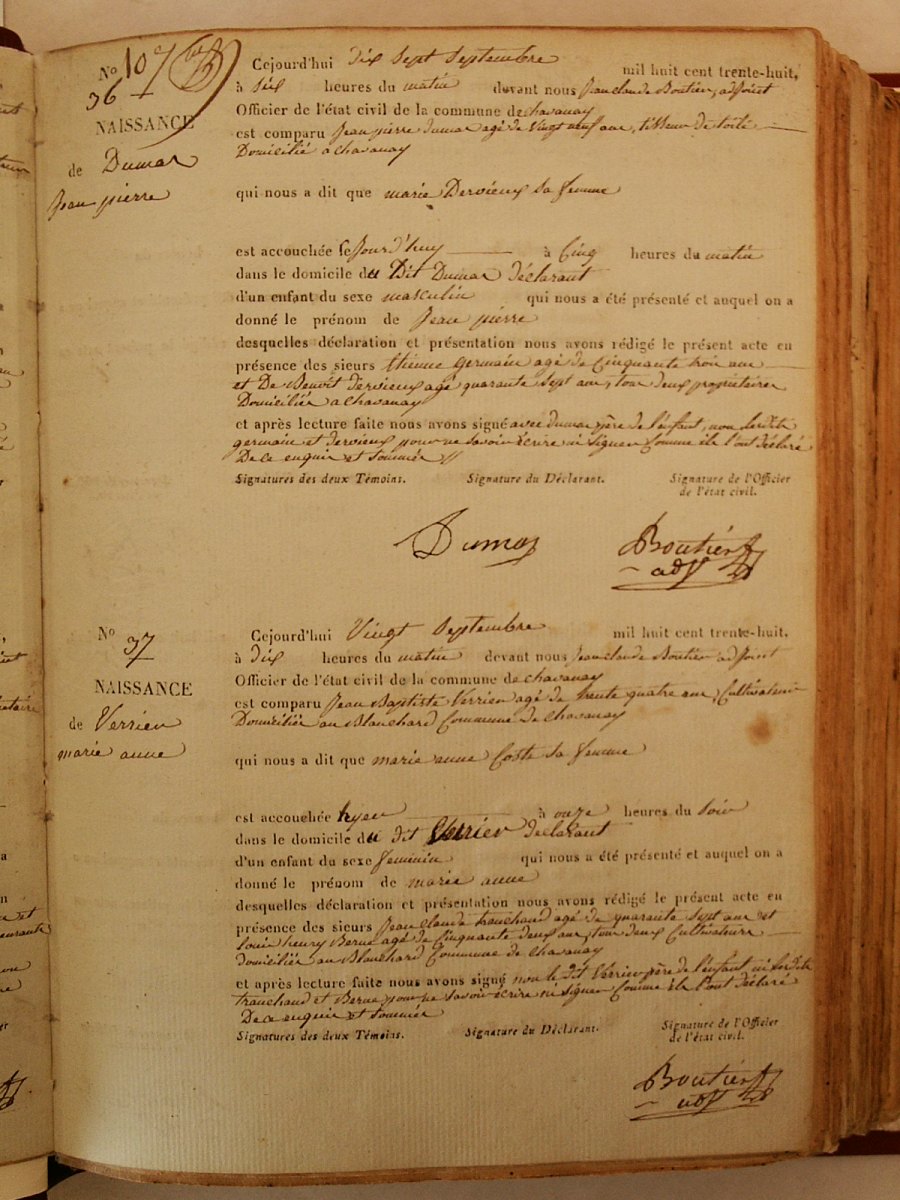 No 107
36
NAISSANCE
de Dumas
Jean pierre
Cejourd'hui dix sept septembre mil huit cent trente-huit,
à six heures du matin devant nous Jean claude Boutier, adjoint
Officier de l'état civil de la commune de chavanay
est comparu Jean pierre dumas agé de vingt neuf ans, tisseur de toile
Domicilié a chavanay
qui nous a dit que marie Dervieux sa femme
est accouchée cejourd'huy à Cinq heures du matin
dans le domicile du Dit Dumas déclarant
d'un enfant du sexe masculin qui nous a été présenté et auquel on a
donné le prénom de Jean pierre
desquelles déclaration et présentation nous avons rédigé le présent acte en
présence des sieurs Etienne Germain agé de Cinquante trois ans
et De Benoit dervieux agé quarante sept ans, tous deux propriétaires
Domiciliés a chavanay
et après lecture faite nous avons signé avec dumas père de l'enfant, non lesdits
germain et dervieux pour ne savoir écrire ni signer Comme ils l'ont déclaré
De ce enquis et sommés //
Signatures des deux Témoins. Signature du Déclarant. Signature de l'Officier
de l'état civil.
Dumas Boutier
adjt
No 37
NAISSANCE
de Verrier
marie anne
Cejourd'hui Vingt septembre mil huit cent trente-huit.
à dix heures du matin devant nous Jean claude Boutier adjoint
Officier de l'état civil de la commune de chavanay
est comparu Jean Baptiste Verrier agé de trente quatre ans, Cultivateur
Domicilié au Blanchard Commune de chavanay
qui nous a dit que marie anne Coste sa femme
est accouchée hyer à onze heures du soir
dans le domicile du dit Verrier declarant
d'un enfant du sexe feminin qui nous a été présenté et auquel on a
donné le prénom de marie anne
desquelles déclaration et présentation nous avons rédigé le présent acte en
présence des sieurs Jean claude tranchand agé de quarante sept ans et
louis henry Berne agé de Cinquante deux ans, tous deux Cultivateurs
domiciliés au Blanchard Commune de chavanay
et après lecture faite nous avons signé non le dit Verrier père de l'enfant ni lesdits
tranchand et Berne, pour ne savoir écrire ni signer Comme ils l'ont déclaré
De ce enquis et sommés
Signatures des deux Témoins. Signature du Déclarant. Signature de l'Officier
de l'état civil.
Boutier
adjt